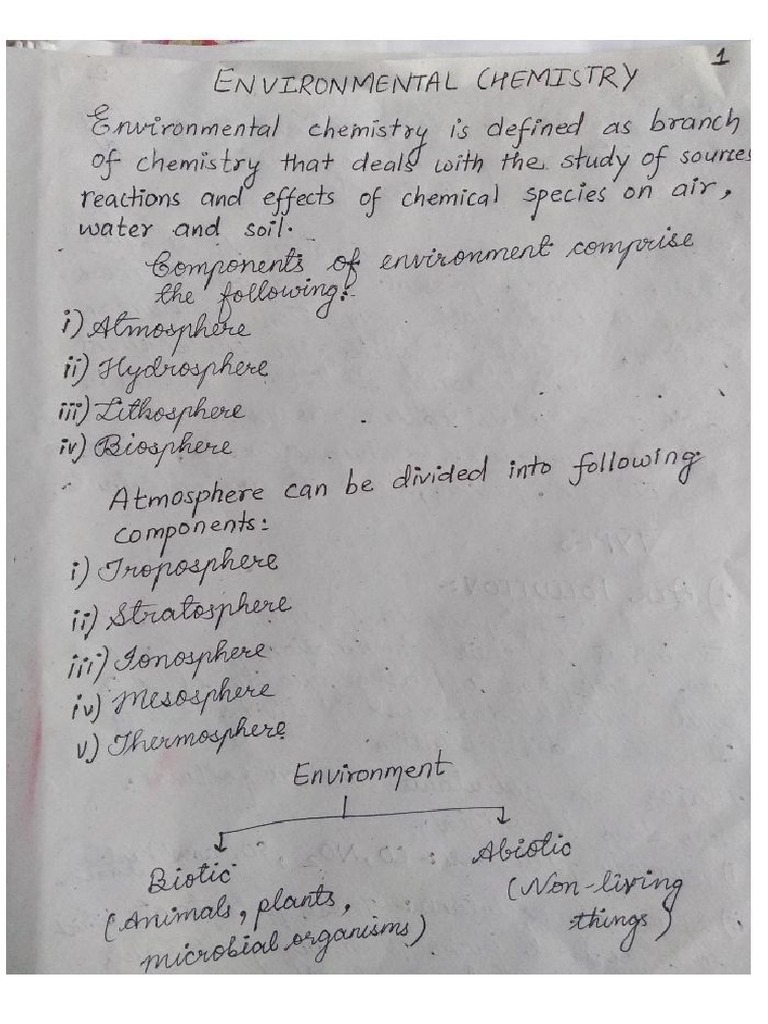 1
ENVIRONMENTAL CHEMISTRY
Environmental chemistry is defined as branch
of chemistry that deals with the study of sources
reactions and effects of chemical species on air,
water and soil.
Components of environment comprise
the following:-
i) Atmosphere
ii) Hydrosphere
iii) Lithosphere
iv) Biosphere
Atmosphere can be divided into following
components:
i) Troposphere
ii) Stratosphere
iii) Ionosphere
iv) Mesosphere
v) Thermosphere
Environment
Biotic
Abiotic
(Animals, plants,
microbial organisms)
(Non-living
things)